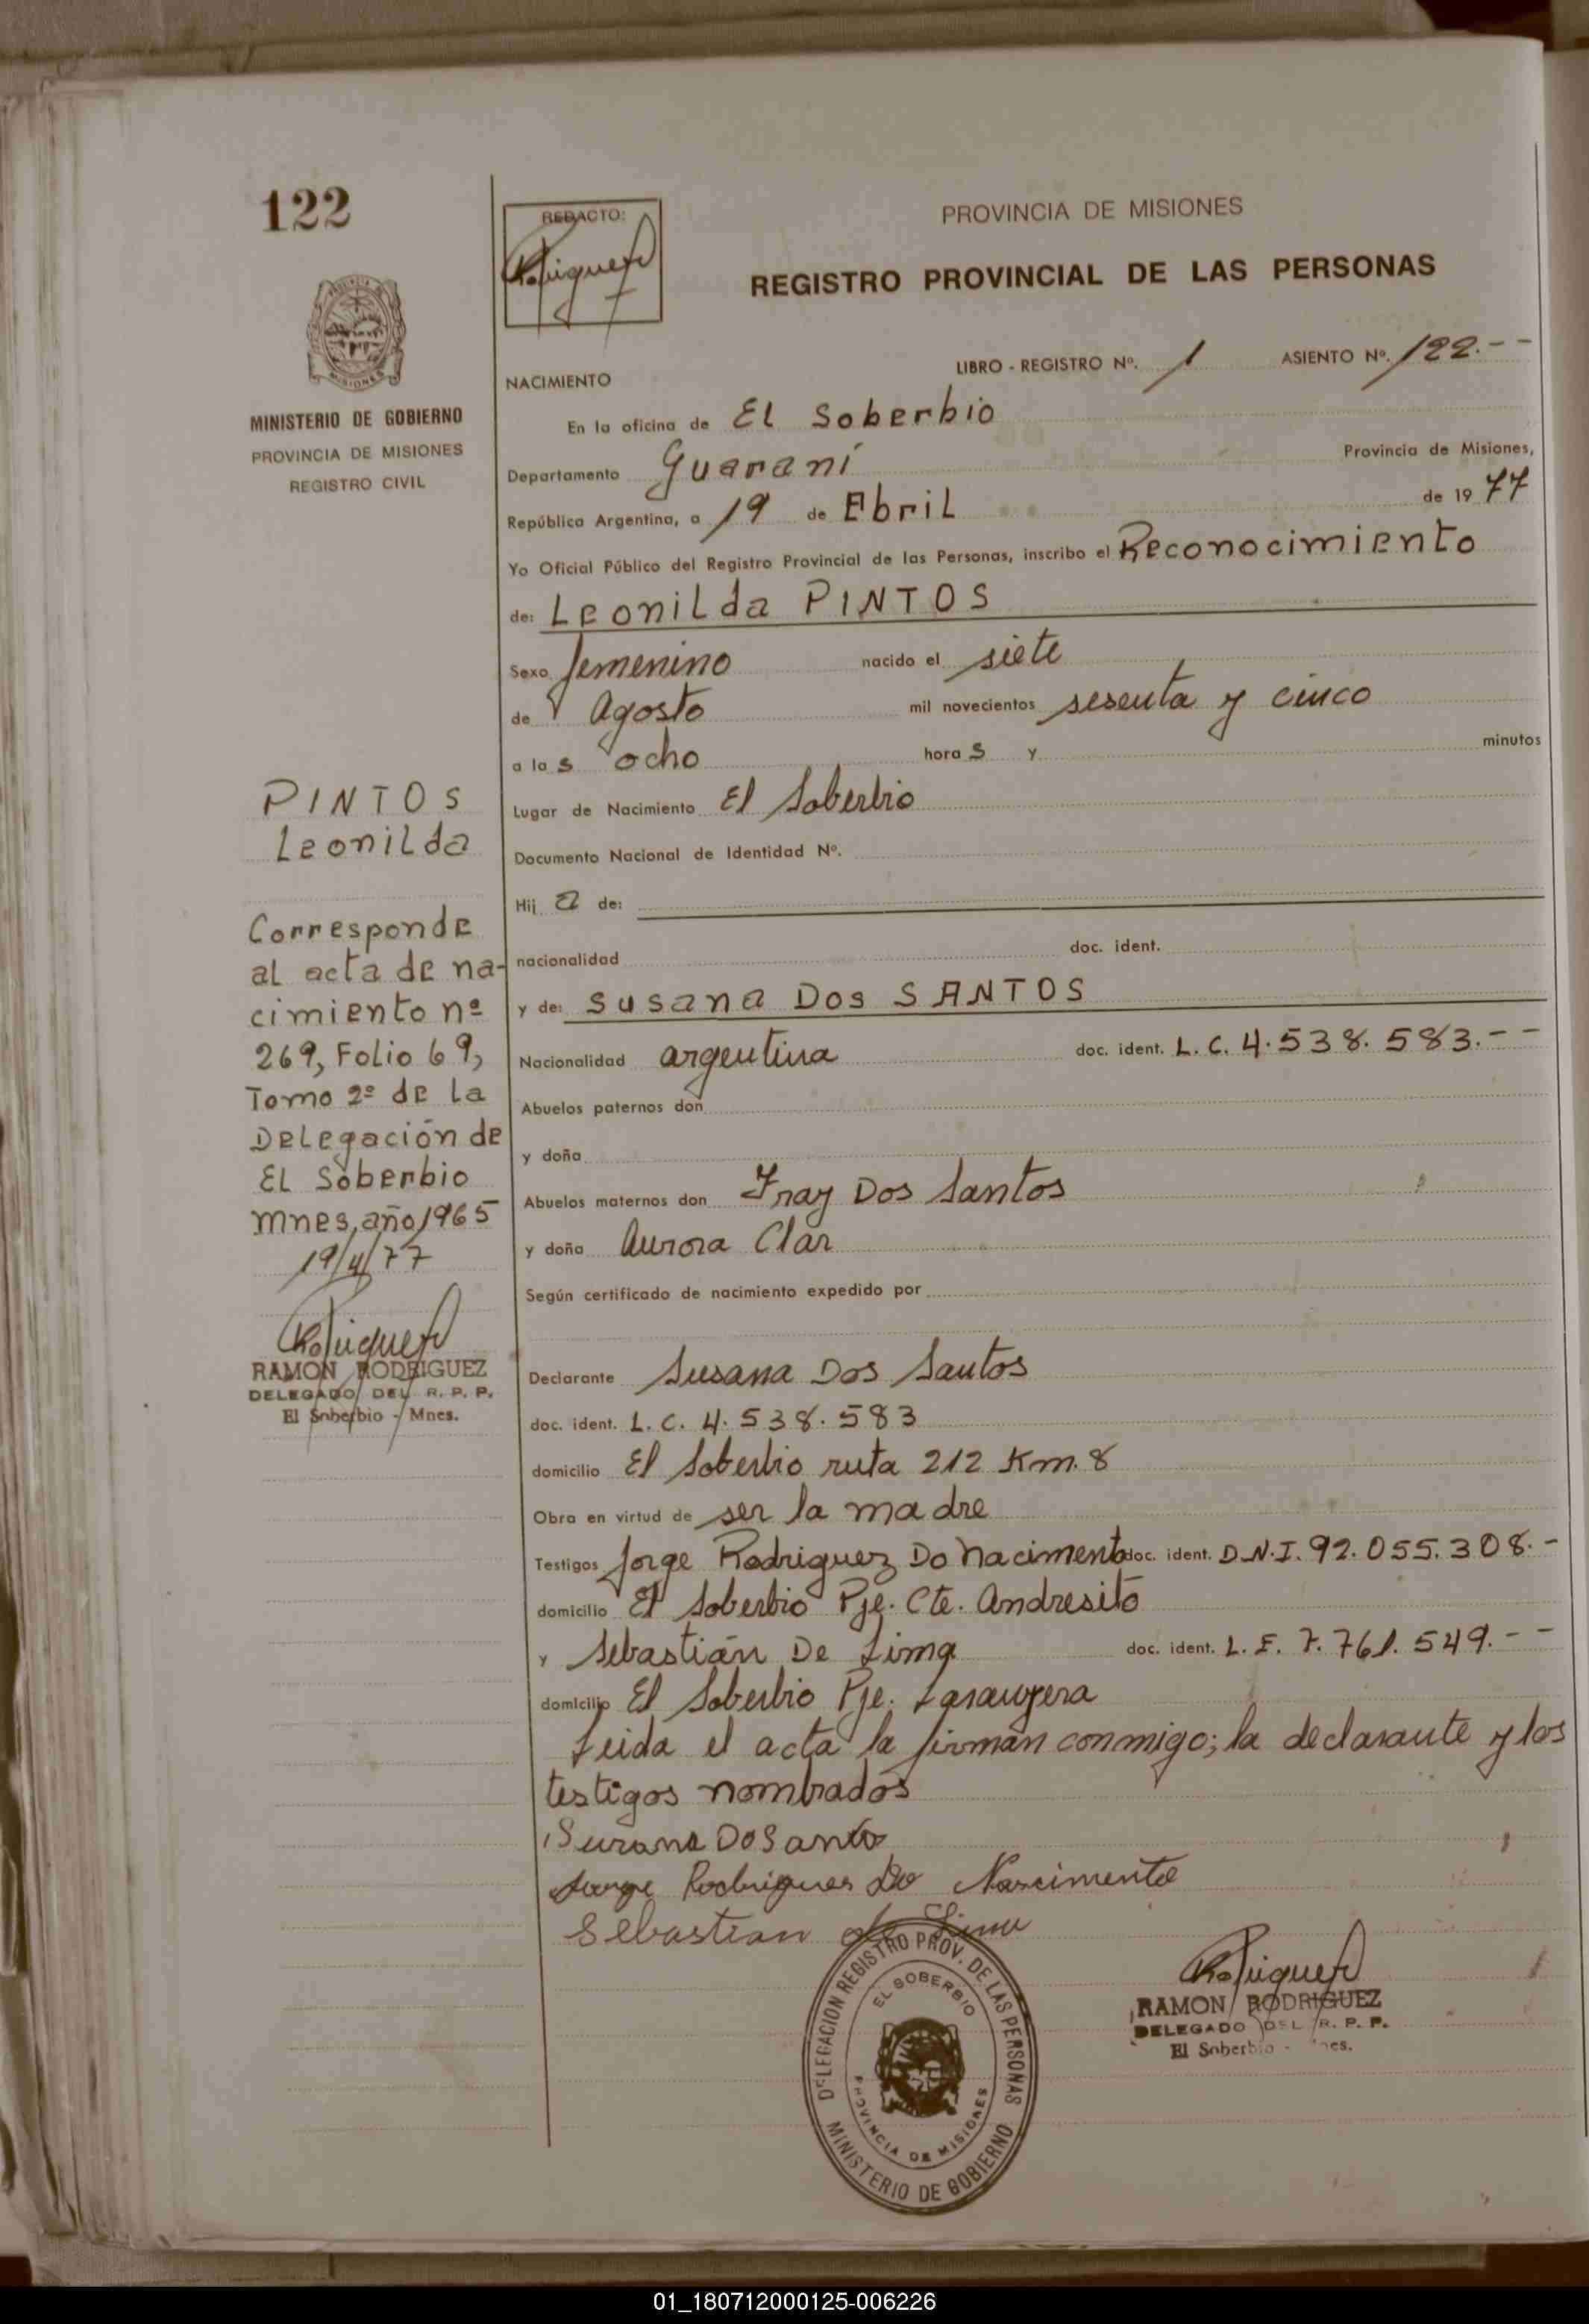 122
REDACTO:
PROVINCIA DE MISIONES
REGISTRO PROVINCIAL DE LAS PERSONAS
MISIONES
MINISTERIO DE GOBIERNO
PROVINCIA DE MISIONES
REGISTRO CIVIL
LIBRO - REGISTRO Nº. 1 ASIENTO Nº. 122.--
NACIMIENTO
En la oficina de El Soberbio
Departamento Guaraní Provincia de Misiones,
República Argentina, a 19 de Abril de 1977
Yo Oficial Público del Registro Provincial de las Personas, inscribo el Reconocimiento
de: Leonilda PINTOS
Sexo femenino nacido el siete
de Agosto mil novecientos sesenta y cinco
a las ocho horas y minutos
Lugar de Nacimiento El Soberbio
Documento Nacional de Identidad Nº.
Hija de:
nacionalidad doc. ident.
y de: Susana Dos SANTOS
Nacionalidad argentina doc. ident. L.C. 4.538.583.--
Abuelos paternos don
y doña
Abuelos maternos don Fray Dos Santos
y doña Aurora Clar
Según certificado de nacimiento expedido por
Declarante Susana Dos Santos
doc. ident. L.C. 4.538.583
domicilio El Soberbio ruta 212 Km. 8
Obra en virtud de ser la madre
Testigos Jorge Rodriguez Do Nacimento doc. ident. D.N.I. 92.055.308.-
domicilio El Soberbio Pje. Cte. Andresito
y Sebastián De Lima doc. ident. L.E. 7.761.549.--
domicilio El Soberbio Pje.
Leida el acta la firman conmigo; la declarante y los
testigos nombrados
Susana Dosanto
Jorge Rodrigues Do Nascimento
Sebastian de Lima
PINTOS
Leonilda
Corresponde
al acta de na-
cimiento nº
269, Folio 69,
Tomo 2º de la
Delegación de
El Soberbio
Mnes, año 1965
19/4/77
RAMON RODRIGUEZ
DELEGADO DEL R. P. P.
El Soberbio - Mnes.
DELEGACION REGISTRO PROV. DE LAS PERSONAS
EL SOBERBIO
PROVINCIA DE MISIONES
MINISTERIO DE GOBIERNO
RAMON RODRIGUEZ
DELEGADO DEL R. P. P.
El Soberbio - Mnes.
01_180712000125-006226